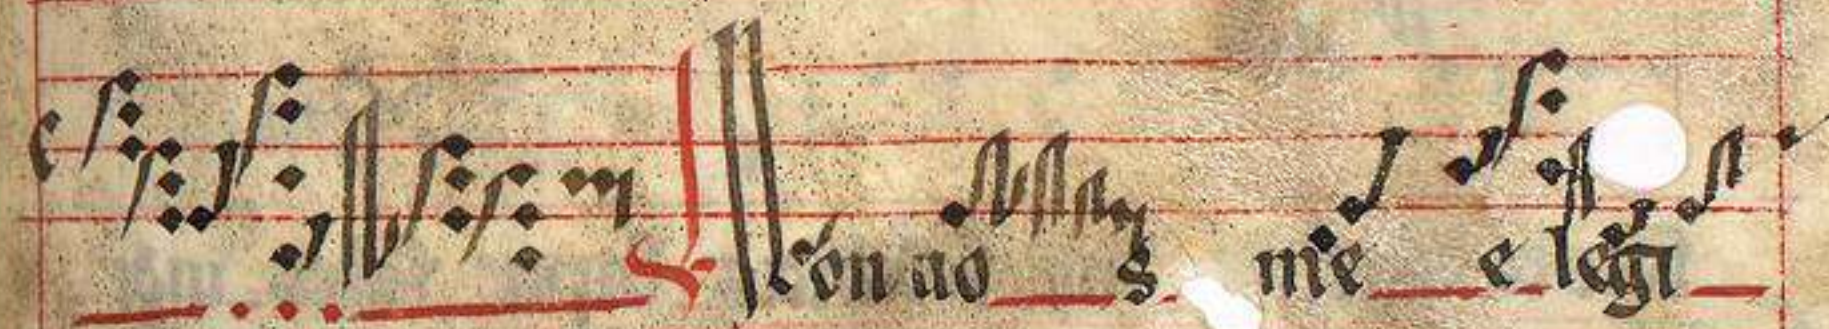 Non uos me elegi